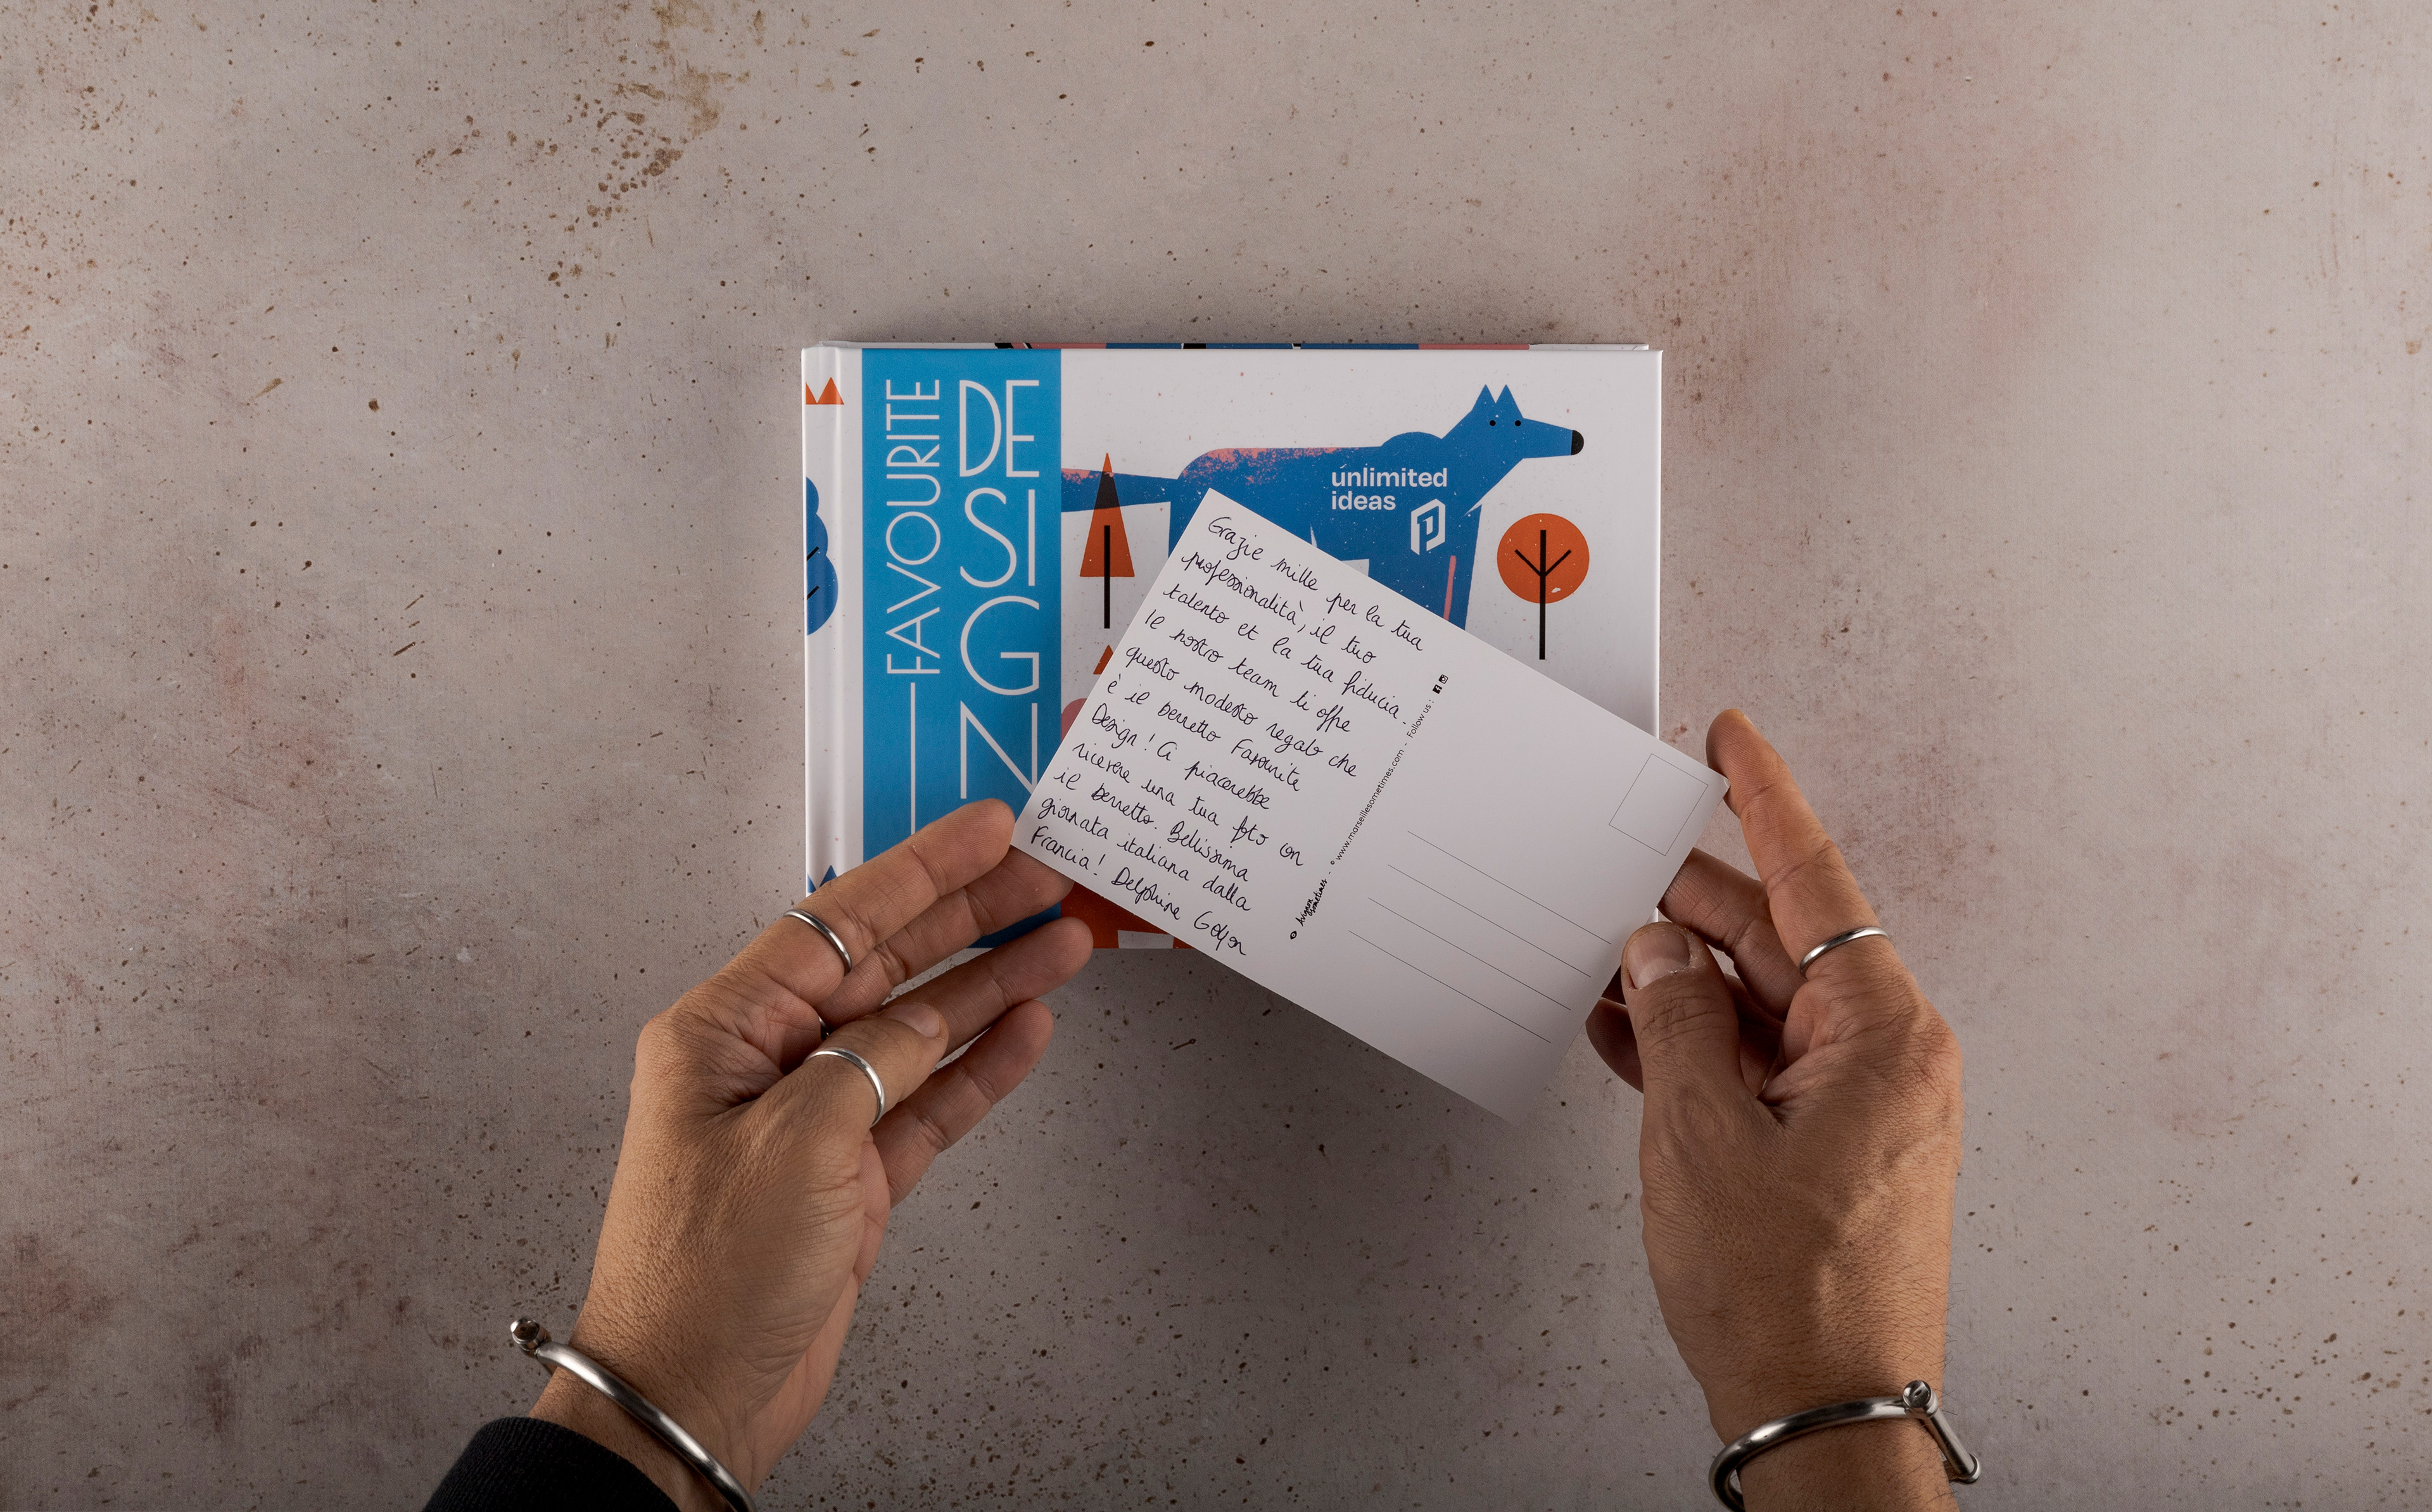 FAVOURITE
DE
SI
G
N
unlimited
ideas
Grazie mille per la tua
professionalità, il tuo
talento et la tua fiducia.
Il nostro team ti offre
questo modesto regalo che
è il berretto Favourite
Design ! Ci piacerebbe
ricevere una tua foto con
il berretto. Bellissima
giornata italiana dalla
Francia ! Delphine
© www.marseillesometimes.com - Follow us :